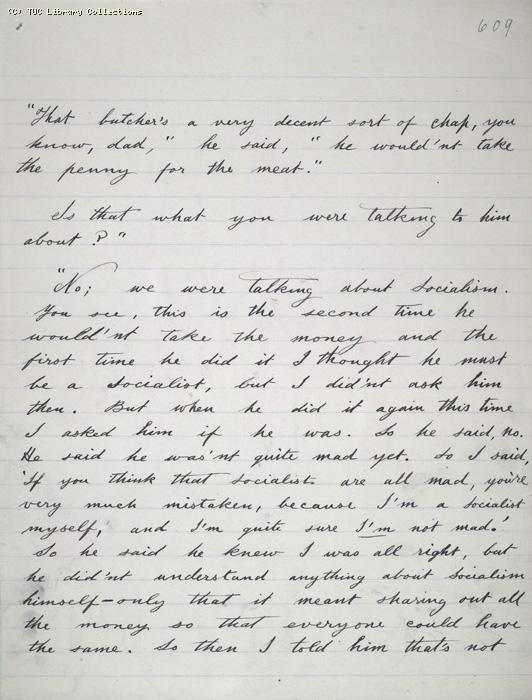 (C) TUC Library Collections
609
"That butcher's a very decent sort of chap, you
know, dad," he said, "he would'nt take
the penny for the meat."
Is that what you were talking to him
about?"
"No; we were talking about Socialism.
You see, this is the second time he
would'nt take the money and the
first time he did it I thought he must
be a Socialist, but I did'nt ask him
then. But when he did it again this time
I asked him if he was. So he said, no.
He said he was'nt quite mad yet. So I said,
'If you think that socialists are all mad, you're
very much mistaken, because I'm a Socialist
myself, and I'm quite sure I'm not mad.'
So he said he knew I was all right, but
he did'nt understand anything about Socialism
himself—only that it meant sharing out all
the money so that everyone could have
the same. So then I told him that's not